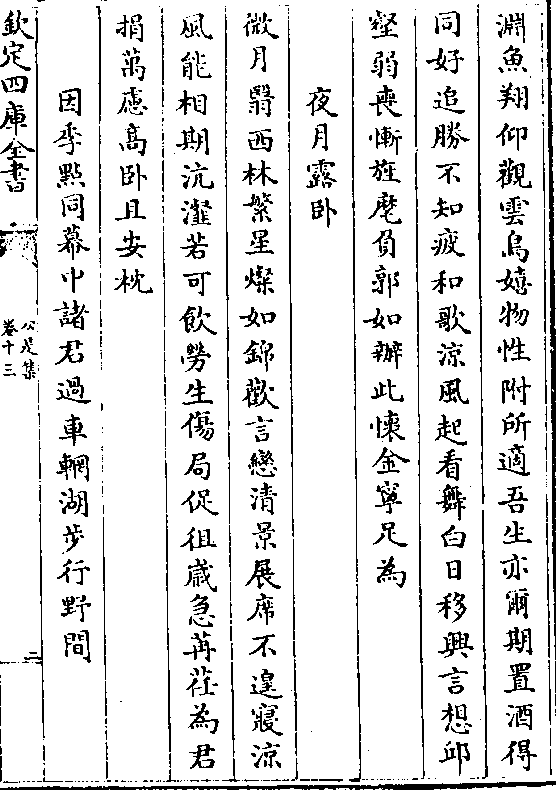 淵魚翔仰觀雲鳥嬉物性附所適吾生亦爾期置酒得
同好追勝不知疲和歌涼風起看舞白日移興言想邱
壑弱喪慚旌麾負郭如辦此懷金寧足為
夜月露卧
微月翳西林繁星燦如錦歡言戀清景展席不遑寢涼
風能相期沆瀣若可飲勞生傷局促徂歲急荏苒為君
捐萬慮高卧且安枕
因季點同幕中諸君過車輞湖步行野間
欽定四庫全書
公是集
卷十三
二